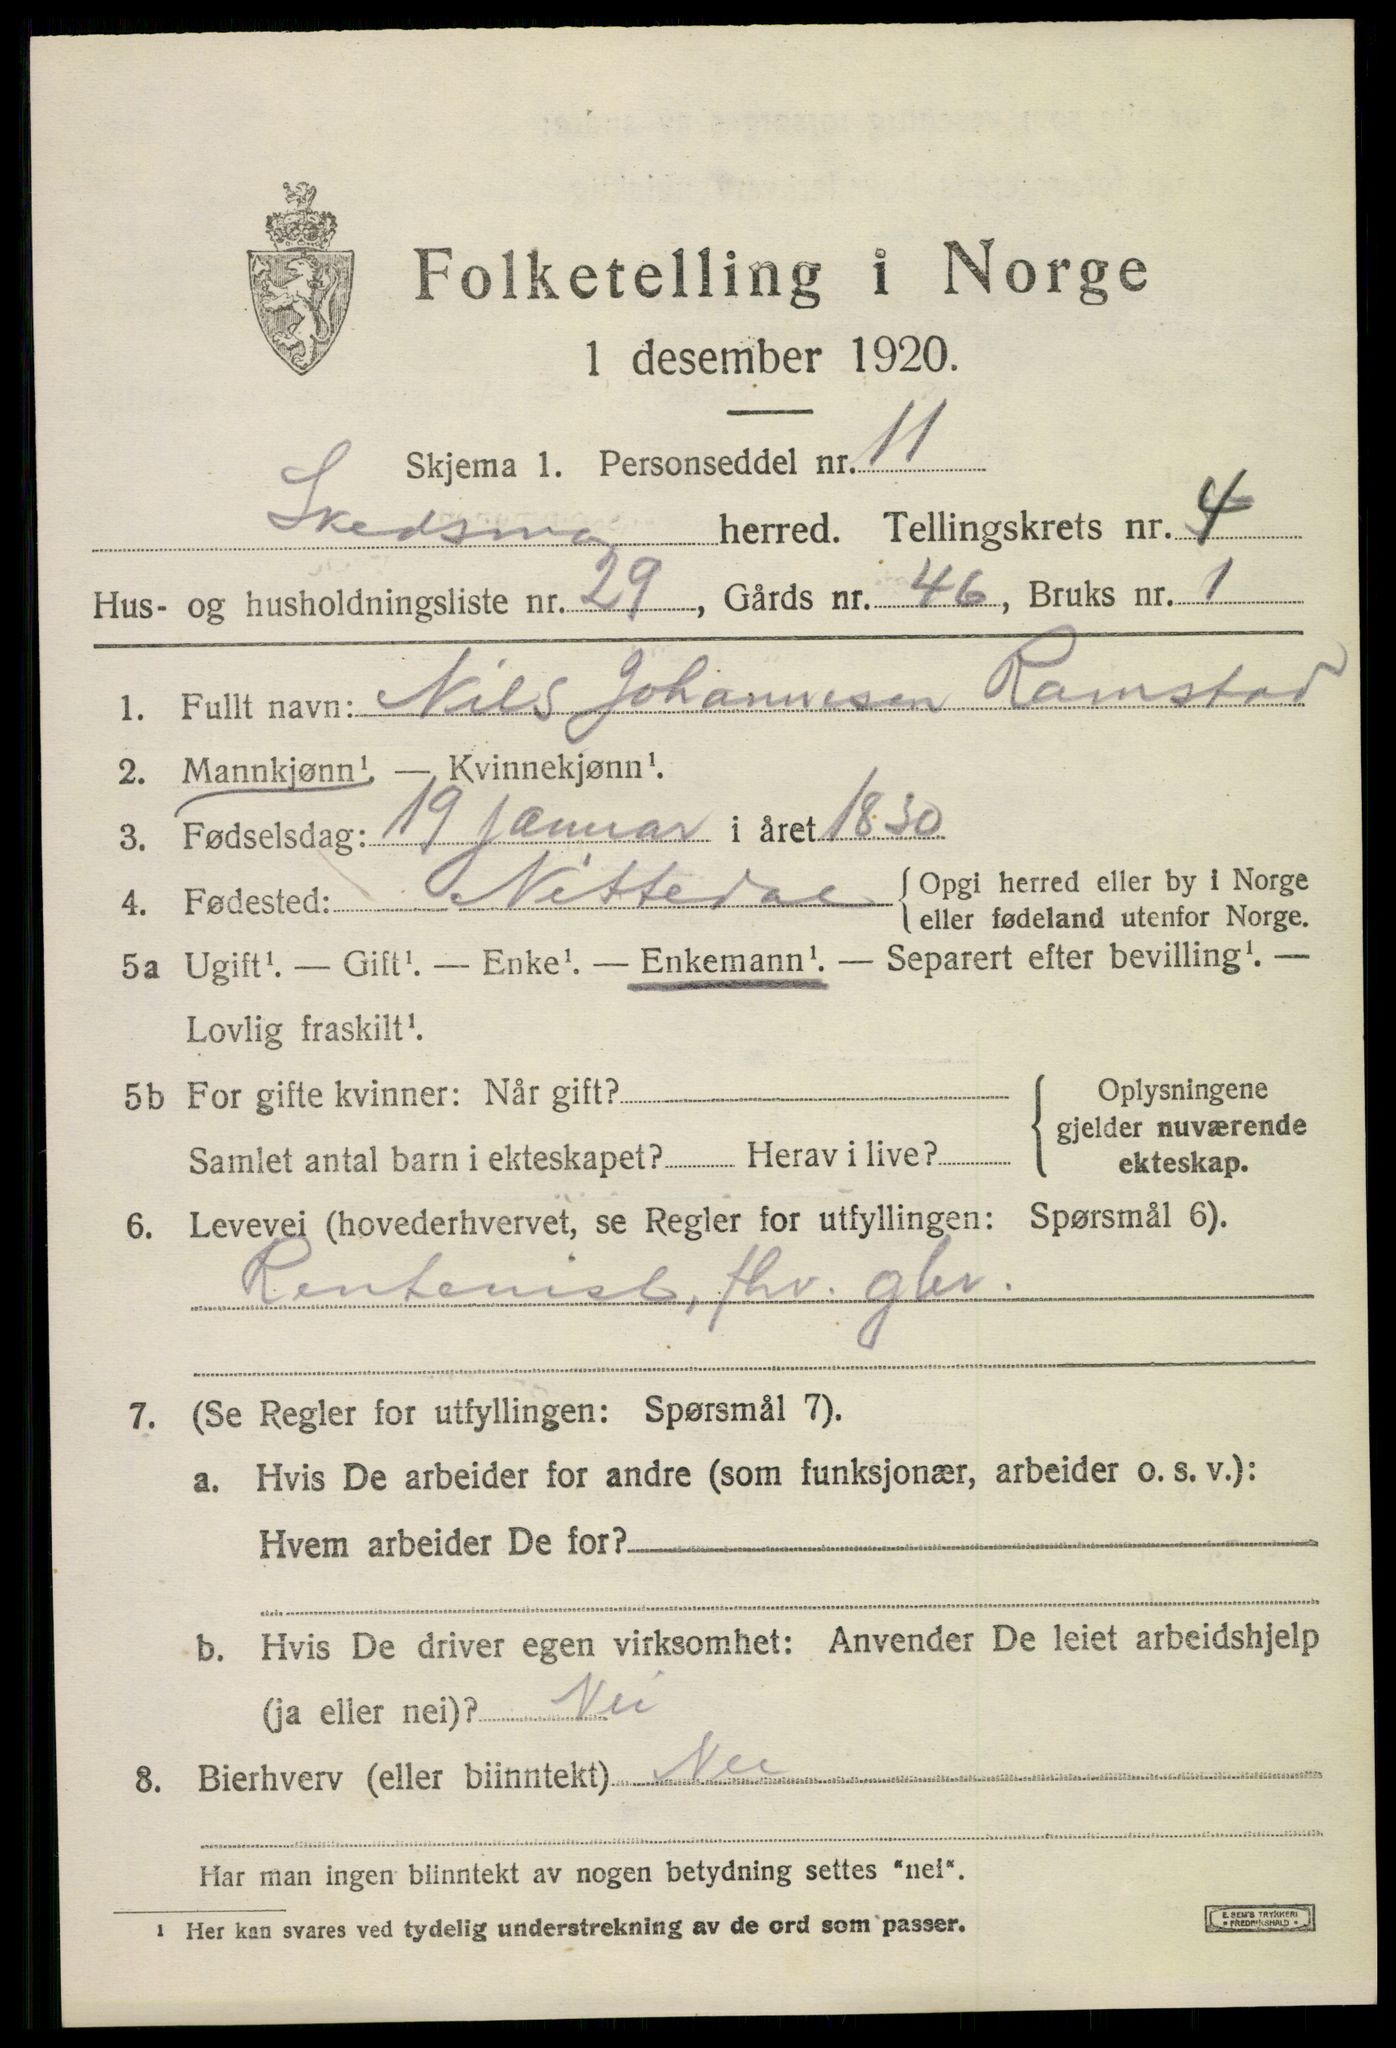 Folketelling i Norge
1 desember 1920.
Skjema 1. Personseddel nr. 11
Skedsmo herred. Tellingskrets nr. 4
Hus- og husholdningsliste nr. 29, Gårds nr. 46, Bruks nr. 1
1. Fullt navn: Nils Johannesen Ramstad
2. Mannkjønn¹. — Kvinnekjønn¹.
3. Fødselsdag: 19 januar i året 1830
4. Fødested: Nittedal { Opgi herred eller by i Norge
eller fødeland utenfor Norge.
5a Ugift¹. — Gift¹. — Enke¹. — Enkemann¹. — Separert efter bevilling¹. —
Lovlig fraskilt¹.
5b For gifte kvinner: Når gift? { Oplysningene
gjelder nuværende
Samlet antal barn i ekteskapet? Herav i live? ekteskap.
6. Levevei (hovederhvervet, se Regler for utfyllingen: Spørsmål 6).
Rentenist, fhv. gbr.
7. (Se Regler for utfyllingen: Spørsmål 7).
a. Hvis De arbeider for andre (som funksjonær, arbeider o. s. v.):
Hvem arbeider De for?
b. Hvis De driver egen virksomhet: Anvender De leiet arbeidshjelp
(ja eller nei)? Nei
8. Bierhverv (eller biinntekt) Nei
Har man ingen biinntekt av nogen betydning settes "nei".
¹ Her kan svares ved tydelig understrekning av de ord som passer.
E. SEM'S TRYKKERI
• FREDRIKSHALD •